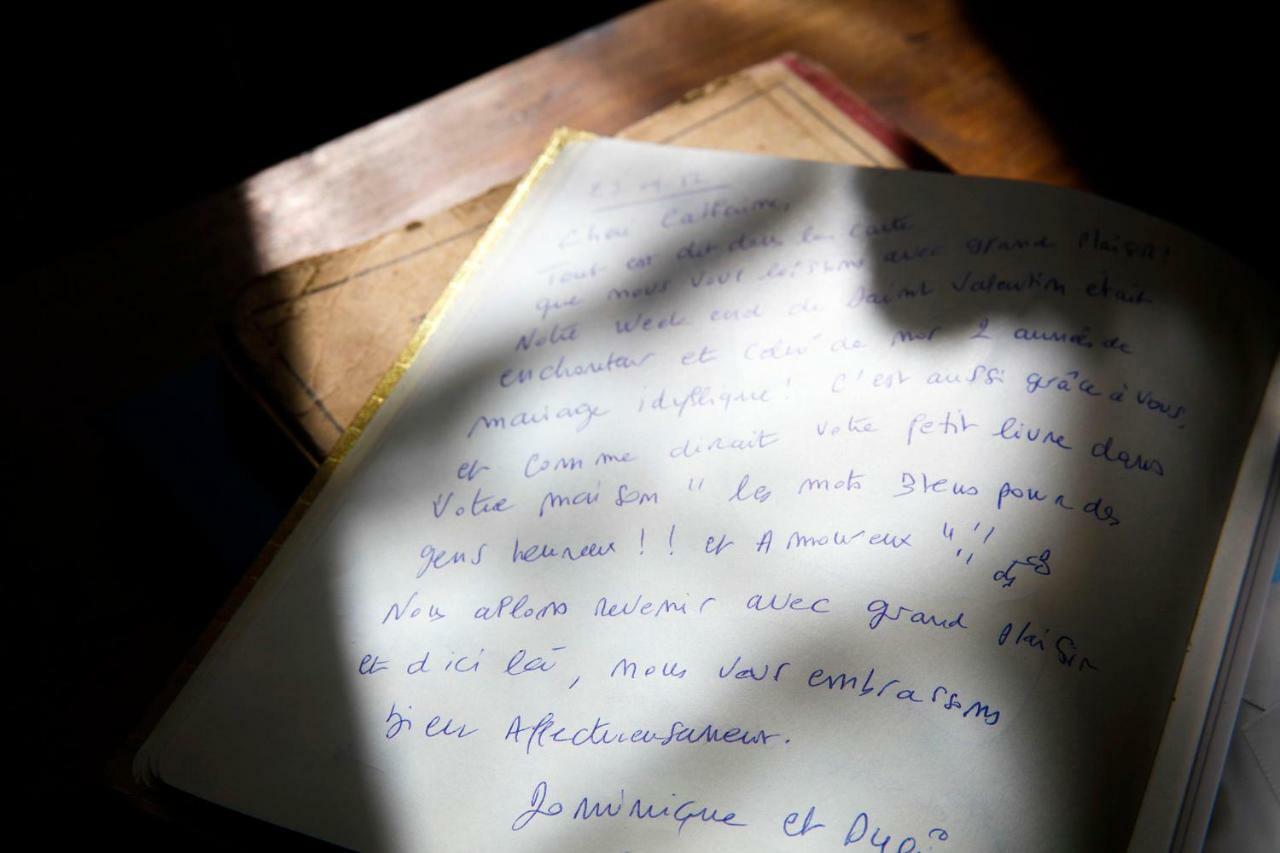 Tout est dit dans la carte
que nous vous laissons avec grand plaisir!
Notre week end de Saint Valentin était
enchanteur et celui de nos 2 années de
mariage idyllique! C'est aussi grâce à vous,
et comme dirait votre petit livre dans
votre maison " les mots Bleus pour des
gens heureux !! et Amoureux "
Nous allons revenir avec grand plaisir
et d'ici là, nous vous embrassons
bien Affectueusement.
Dominique et